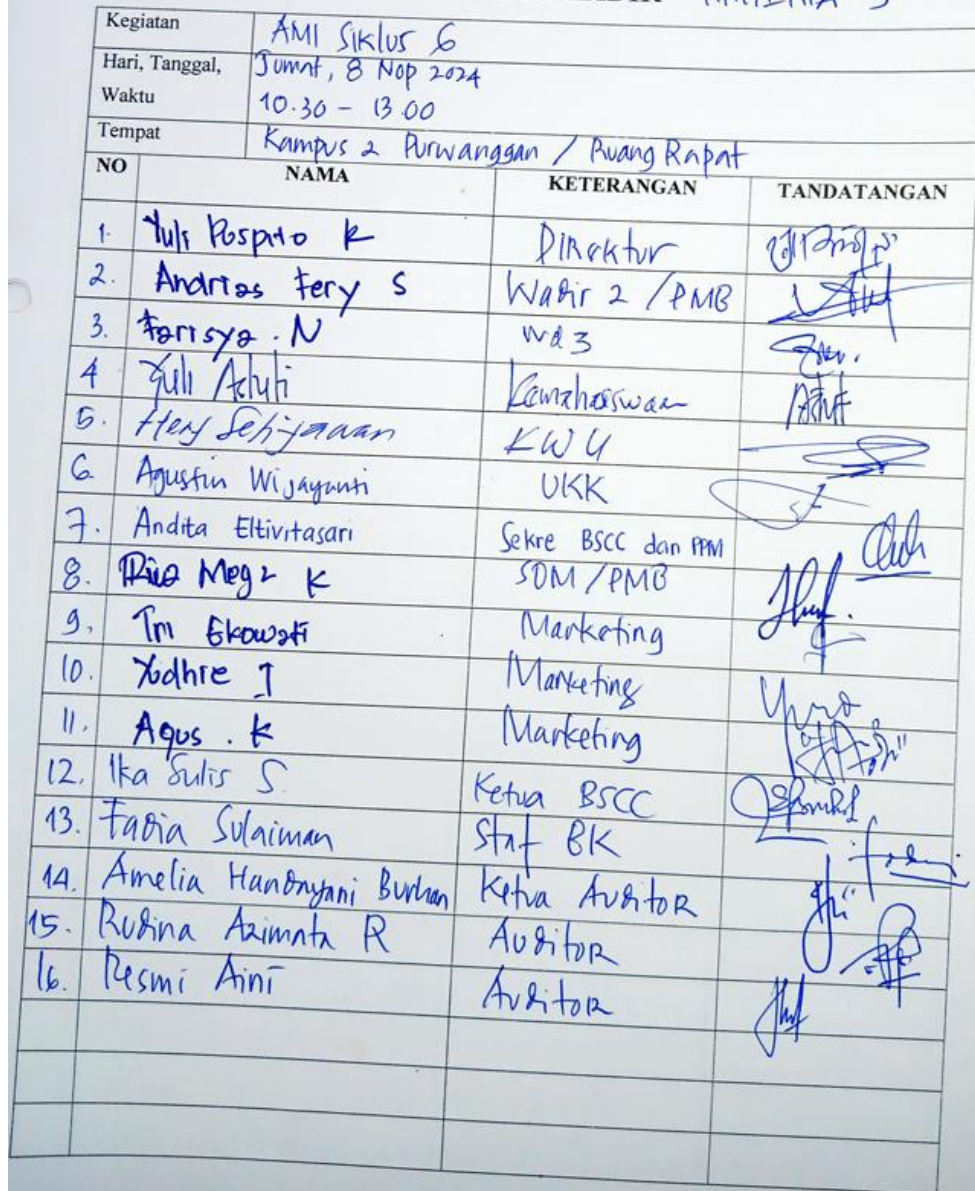 Kegiatan AMI Siklus 6
Hari, Tanggal, Jumat, 8 Nop 2024
Waktu 10.30 - 13.00
Tempat Kampus 2 Purwanggan / Ruang Rapat
NO NAMA KETERANGAN TANDATANGAN
1. Yuli Puspito K Direktur
2. Andrias Fery S Wadir 2 / PMB
3. Farisya . N Wd 3
4 Yuli Astuti Kemahasiswaan
5. Hery Setijawan KWU
6. Agustin Wijayanti UKK
7. Andita Eltivitasari Sekre BSCC dan PPM
8. Mega K SDM / PMB
9. Tri Ekowati Marketing
10. Yodhie J Marketing
11. Agus . K Marketing
12. Ika Sulis S. Ketua BSCC
13. Fadia Sulaiman Staf BK
14. Amelia Handayani Burhan Ketua Auditor
15. Rudina Azimata R Auditor
16. Resmi Aini Auditor